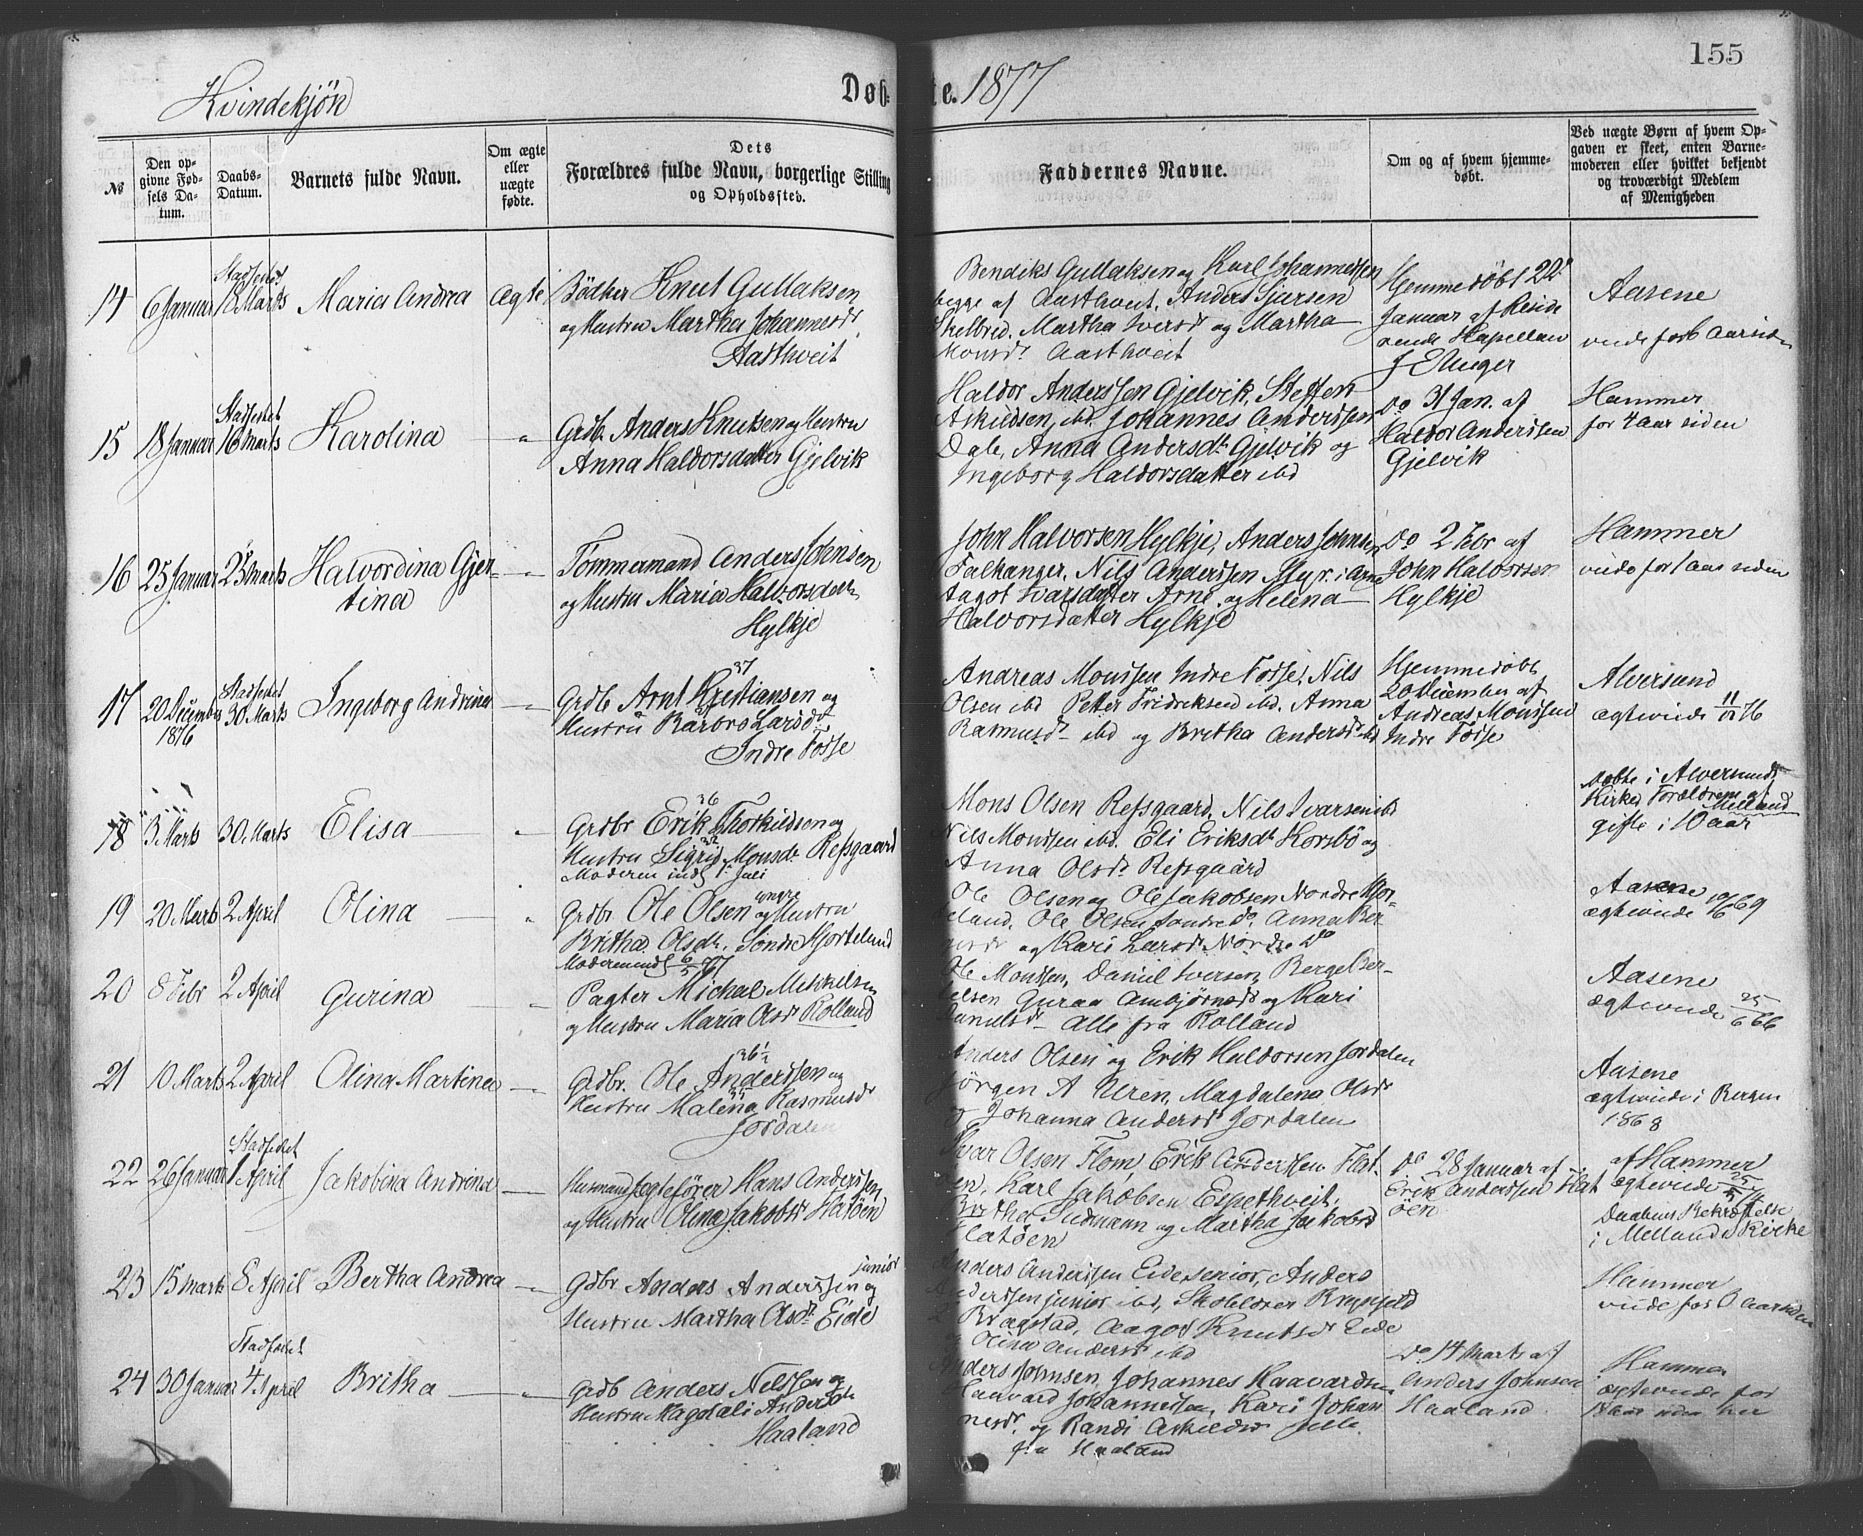 155
Kvindekjön
Døb- te. 1877
№
Den op-
givne Fød-
sels Da-
tum.
Daabs-
Datum.
Barnets fulde Navn.
Om ægte
eller
uægte
fødte.
Dets
Forældres fulde Navn, borgerlige Stilling
og Opholdssted.
Faddernes Navne.
Om og af hvem hjemme-
døbt.
Ved uægte Børn af hvem Op-
gaven er skeet, enten Barne-
moderen eller hvilket bekjendt
og troværdigt Medlem
af Menigheden
14
6 Januar
Stadfestet
18 Marts
Maria Andrea
Ægte
Bödker Knut Gullaksen
og Hustru Martha Johannesdr
Aasthveit
Bendiks Gullaksen og Karl Johannessen
begge af Aasthveit, Anders Sjursen
Skelbred, Martha Iversdr og Martha
Monsdr Aasthveit
Hjemmedöbt 22d
Januar af Resi
rende Kapellan
J E Unger
Aasene
15
18 Januar
Stadfestet
16 Marts
Karolina
"
Grdb. Anders Knutsen og Hustru
Anna Haldorsdatter Gjelvik
Haldor Anderssen Gjelvik, Steffen
Askildsen, ibd. Johannes Anderssen
Dale, Anna Andersdr Gjelvik og
Ingeborg Haldorsdatter ibd
Do 31 Jan. af
Haldor Anderssen
Gjelvik
Hammer
for 4 aar siden
16
25 Januar
25 Marts
Halvordina Gjer-
tina
"
Tömmermand Anders Johnsen
og Hustru Maria Halvorsdatr
Hylkje
John Halvorsen Hylkje, Anders Johnsen
Falkanger, Nils Anderssen Styr. i Arne
Halvorsdatter Hylkje
Do 2 Febr af
John Halvorsen
Hylkje
Hammer
viede for 1 aar siden
17
20 December
1876
Stadfestet
30 Marts
Ingeborg Andrina
"
37
Grdb Arnt Kristiansen og
Hustru Barbro Larsdr
Indre Fosse
Andreas Monssen Indre Fosse, Nils
Olsen ibd Petter Fridriksen ibd. Anna
Rasmusdr ibd og Britha Andersdr ibd
Hjemmedöbt
20 December af
Andreas Monssen
Indre Fosse
Alversund
ægteviede 11/11 76
18
3 Marts
30 Marts
Elisa
"
36
Grdbr Erik Thorkildsen og
Hustru Sigrid Monsdr Refsgaard
Moderen inds. 1 Juli
Mons Olsen Refsgaard, Nils Ivarsen ibd
Nils Monssen ibd. Eli Eriksdr Horsbö og
Anna Olsdr Refsgaard
Döbte i Alversunds
Kirke, Forældrene af
Melland
gifte i 10 aar
19
20 Marts
2 April
Olina
"
Grdbr Ole Olsen yngre og Hustru
Britha Olsdr. Söndre Hjortland
Moderen inds 6/5 77
Ole Olsen og Ole Jakobsen Nordre Hjor-
teland, Ole Olsen Söndre do, Anna Ber-
gesdr og Kari Larsdr Nordre Do
Aasene
ægteviede 10/6 69
20
8 Febr
2 April
Gurina
"
Pagter Michal Mikkelsen
og Hustru Maria Olsdr Rolland
Ole Monssen, Daniel Iversen, Berge Ber-
Guraa Ambjörnsdr og Kari
Danielsdr alle fra Rolland
Aasene
ægteviede 25/6 66
21
10 Marts
2 April
Olina Martina
"
36 1/2
Grdbr. Ole Anderssen og
35
Hustru Malena Rasmusdr
Jordalen
Anders Olsen og Erik Haldorsen Jordalen
Jörgen A Uren, Magdalena Olsdr
og Johanna Andersdr Jordalen
Aasene
ægteviede i Bergen
1868
22
26 Januar
Stadfæstet
1 April
Jakobina Andrina
"
Husmand Jægtefører Hans Anderssen
og Hustru Olina Jakobsdr Flatöen
Ivar Olsen Flom, Erik Anderssen Flat-
öen, Karl Jakobsen Espethveit,
og Martha Jakobsdr
Flatöen
Do 28 Januar af
Erik Anderssen Flat
öen
af Hammer
ægteviede
Daabens Bekræftelse
i Mellands Kirke
23
15 Marts
8 April
Bertha Andrea
"
Gdbr Anders Anderssen junior og
Hustru Martha Olsdr. Eide
Anders Anderssen Eide senior, Anders
Anderssen junior ibd, Skolelærer Brynjeld
Brægstad, Aagot Knutsdr Eide
og Olina Andersdr ibd
Hammer
viede for 3 aar siden
24
30 Januar
Stadfæstet
4 April
Britha
"
Grdb Anders Nilssen og
Hustru Magdali Andersdtr
Haaland
Anders Johnsen, Johannes Haavardsen
Haavard Johannessen, Kari Johan
nesdr. og Randi Askildsdr alle
fra Haaland
Do 14 Marts af
Anders Johnsen
Haaland
Hammer
ægteviede for